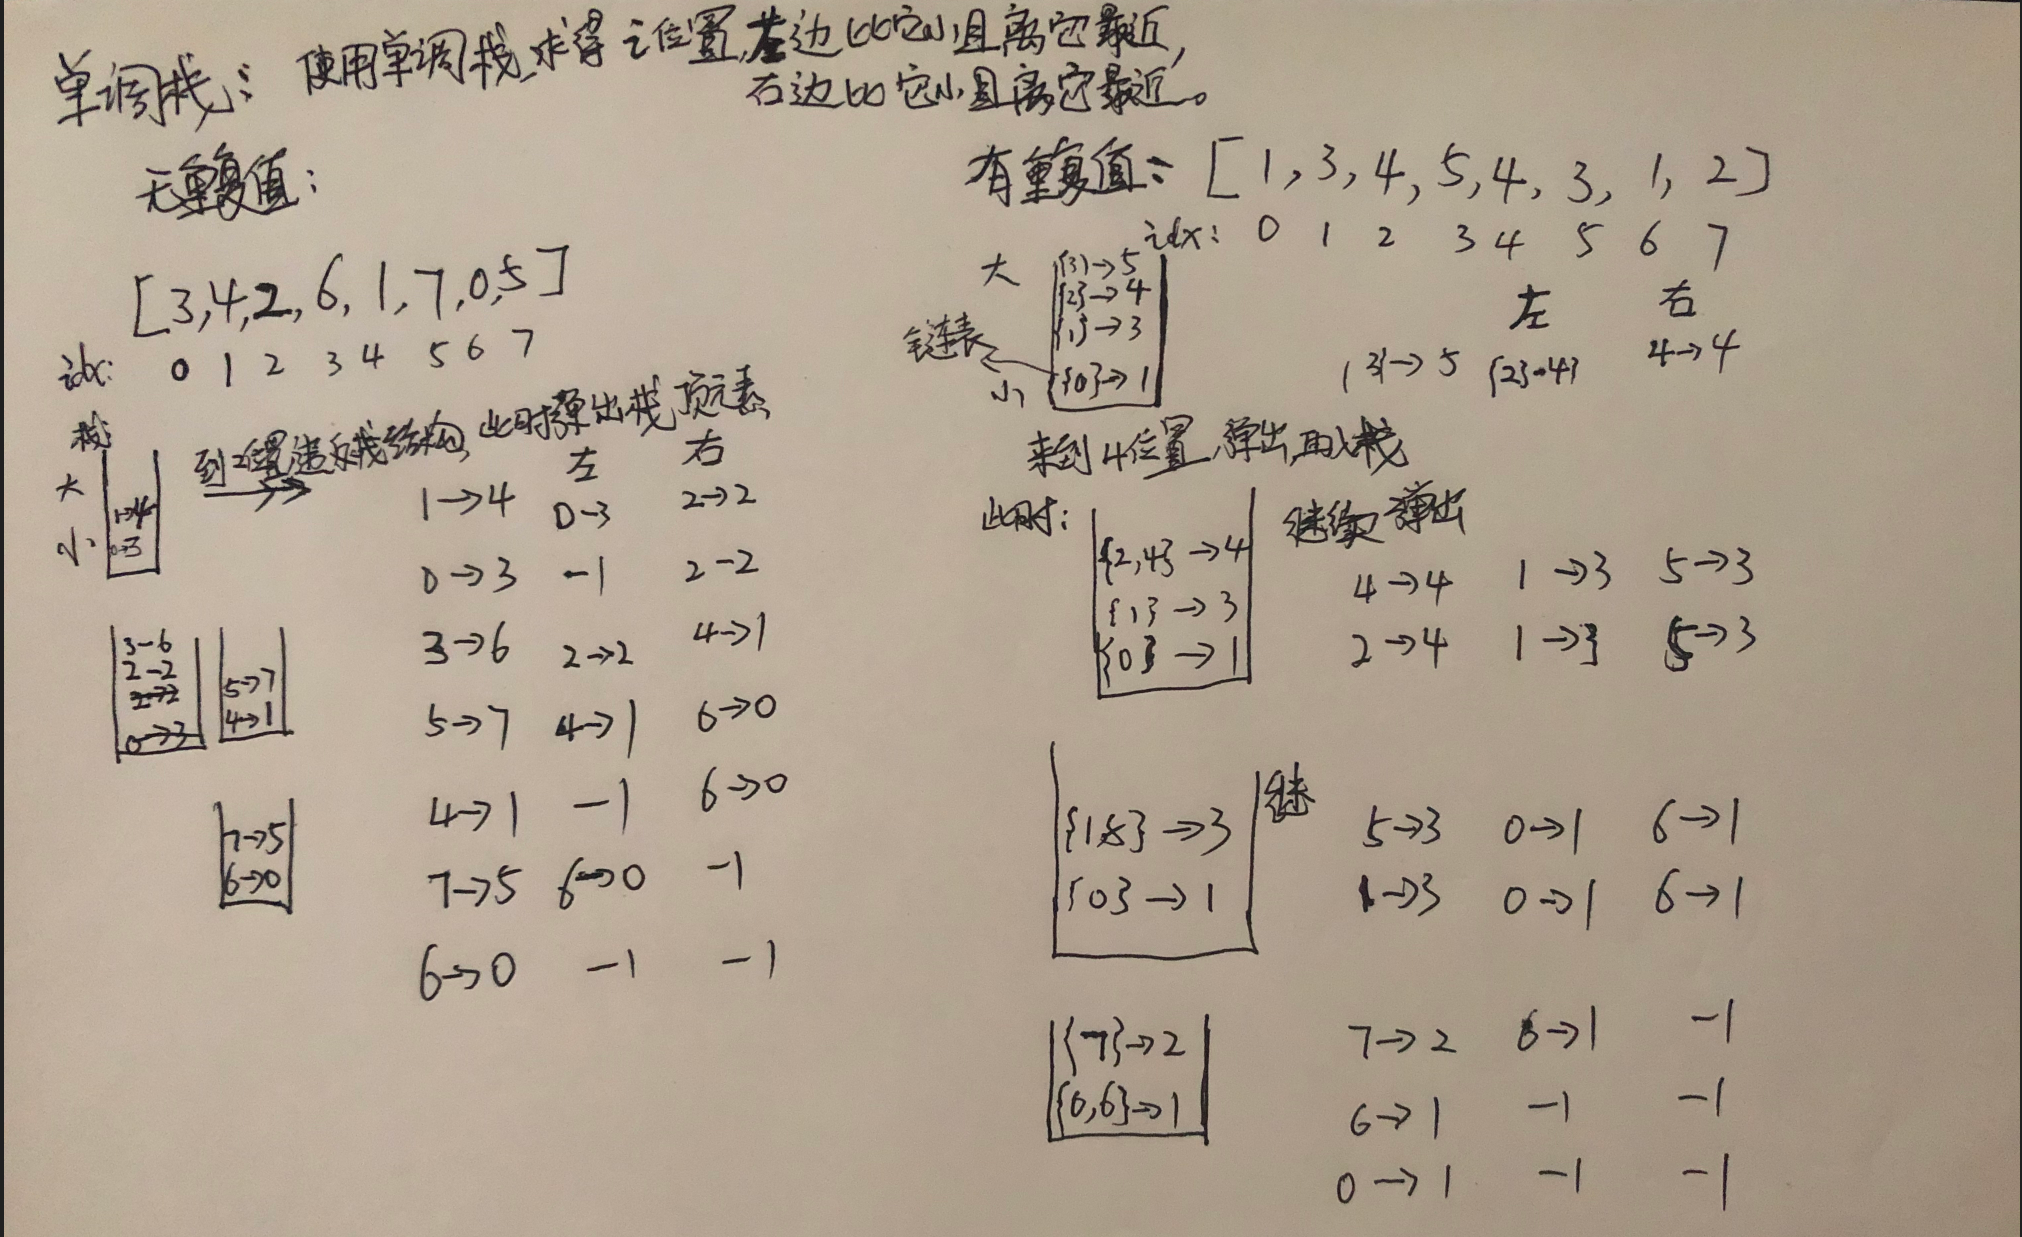 单调栈：使用单调栈求得i位置,左边比它小且离它最近,
右边比它小且离它最近。
无重复值：
[3,4,2,6,1,7,0,5]
idx: 0 1 2 3 4 5 6 7
栈
大
小
1→4
0→3
到2位置违反栈结构,此时弹出栈顶元素
左 右
1→4 0→3 2→2
0→3 -1 2-2
3→6 2→2 4→1
5→7 4→1 6→0
4→1 -1 6→0
7→5 6→0 -1
6→0 -1 -1
3-6
2-2
0→3
5→7
4→1
7→5
6→0
有重复值：[1,3,4,5,4,3,1,2]
idx: 0 1 2 3 4 5 6 7
大
小
链表
{3}→5
{2}→4
{1}→3
{0}→1
左 右
{3}→5 {2}→4} 4→4
来到4位置,弹出,再入栈
此时：
{2,4}→4
{1}→3
{0}→1
继续弹出
4→4 1→3 5→3
2→4 1→3 5→3
{1,5}→3
{0}→1
继
5→3 0→1 6→1
1→3 0→1 6→1
{7}→2
{0,6}→1
7→2 6→1 -1
6→1 -1 -1
0→1 -1 -1